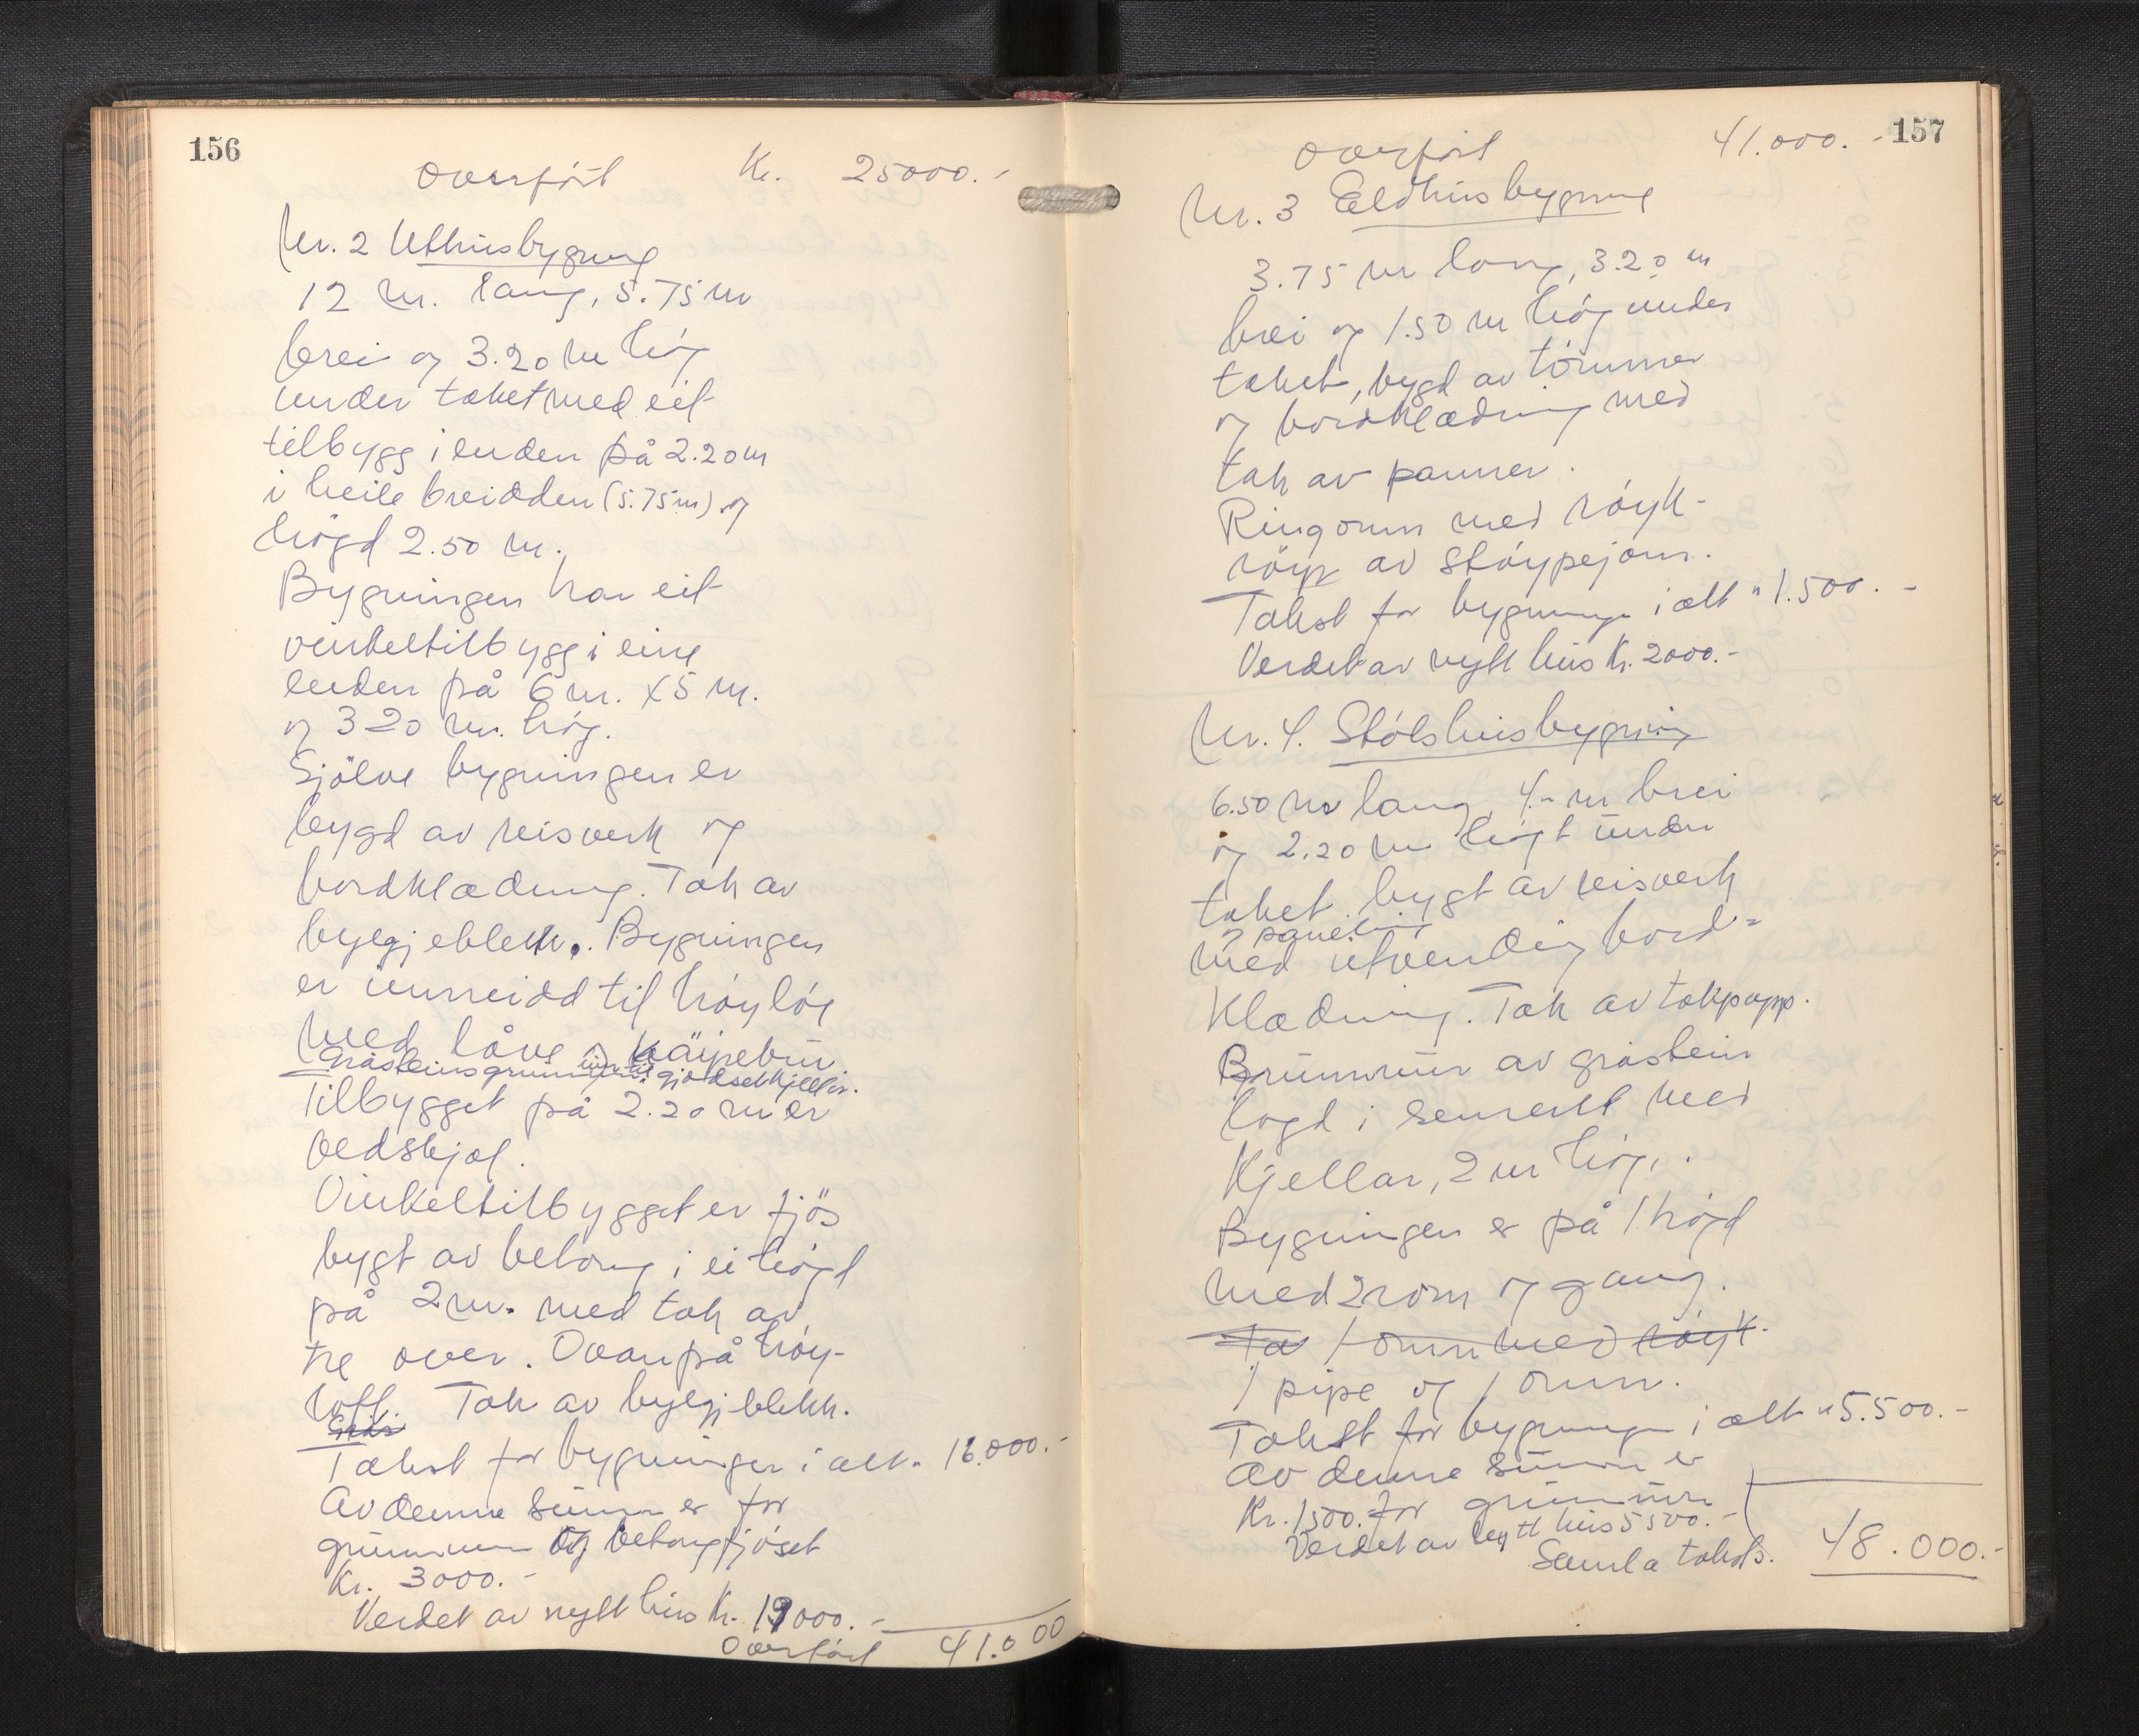 156
Overført Kr. 25000.-
Nr. 2 Uthusbygning
12 m. lang, 5.75 m
brei og 3.20 m høg
under taket med eit
tilbygg i enden på 2.20 m
i heile breidden (5.75 m) og
høgd 2.50 m.
Bygningen har eit
vinkeltilbygg i eine
enden på 6 m. x 5 m.
og 3 20 m. høg.
Sjölve bygningen er
bygd av reisverk og
bordklædning. Tak av
bylgjeblekk. Bygningen
er innreidd til høyløe
med låve og
Gråsteinsgrunnmur til gjødselkjellar.
Tilbygget på 2.20 m er
vedskjol.
Vinkeltilbygget er fjös
bygt av betong i ei høgd
på 2 m. med tak av
tre over. Ovanpå høy-
loft. Tak av bylgjeblekk.
Takst for bygningen i alt " 16.000.-
Av denne summen er for
grunnmur og betongfjøset
Kr. 3000.-
Verdet av nytt hus Kr. 19000.-
Overført 41.000
157
Overført 41.000.-
Nr. 3 Eldhusbygning
3.75 m lang, 3.20 m
brei og 1.50 m høg under
taket, bygd av tømmer
og bordklædning med
tak av panner.
Ringomn med røyk-
røyr av støypejarn.
Takst for bygningen i alt " 1.500.-
Verdet av nytt hus Kr. 2000.-
Nr. 4. Stølshusbygning
6.50 m lang, 4.- m brei
og 2.20 m høgt under
taket bygt av reisverk
og paneling
med utvendig bord-
klædning. Tak av takpapp.
Grunnmur av gråstein
lagd i sement med
Kjellar, 2 m høg.
Bygningen er på 1 høgd
med 2 rom og gang.
Ta 1 omn med røyk-
1 pipe og 1 omn.
Takst for bygningen i alt " 5.500.-
Av denne summen er
Kr. 1500. for grunnmuren
Verdet av nytt hus 5500.-
Samla takst. 48.000.-